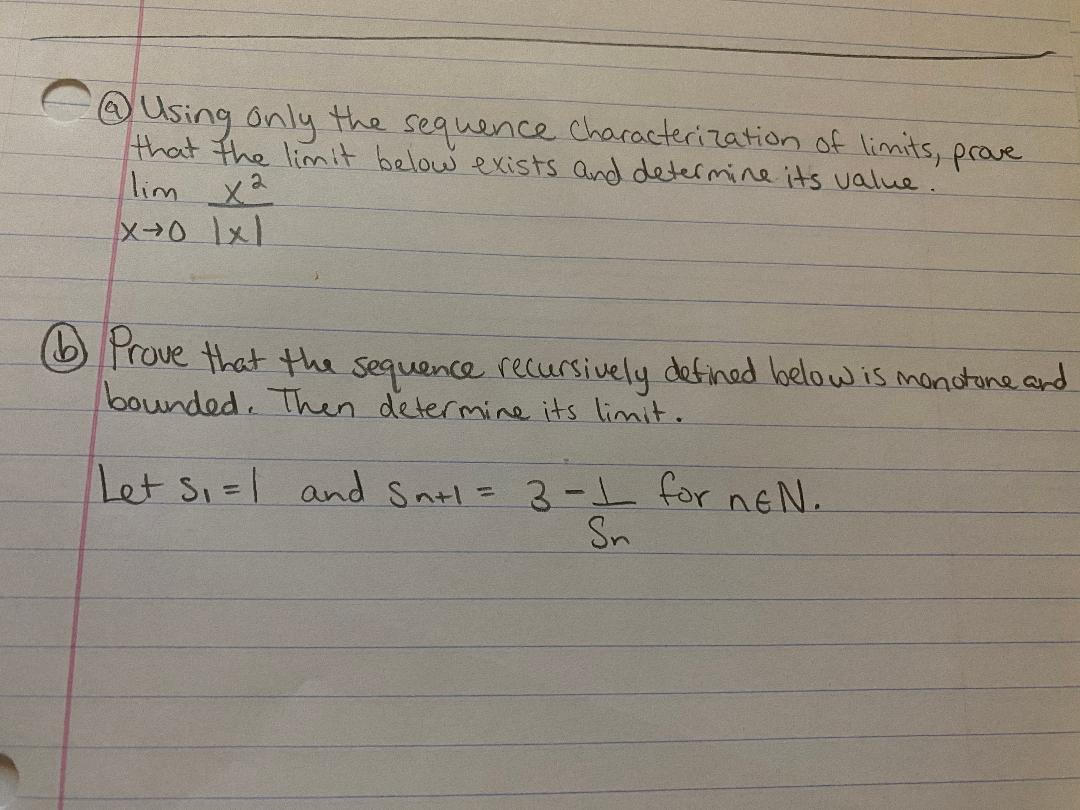 ⓐ Using only the sequence characterization of limits, prove
that the limit below exists and determine its value.
lim x²
x→0 |x|
ⓑ Prove that the sequence recursively defined below is monotone and
bounded. Then determine its limit.
Let s₁ = 1 and sₙ₊₁ = 3 - 1 for n∈N.
Sₙ